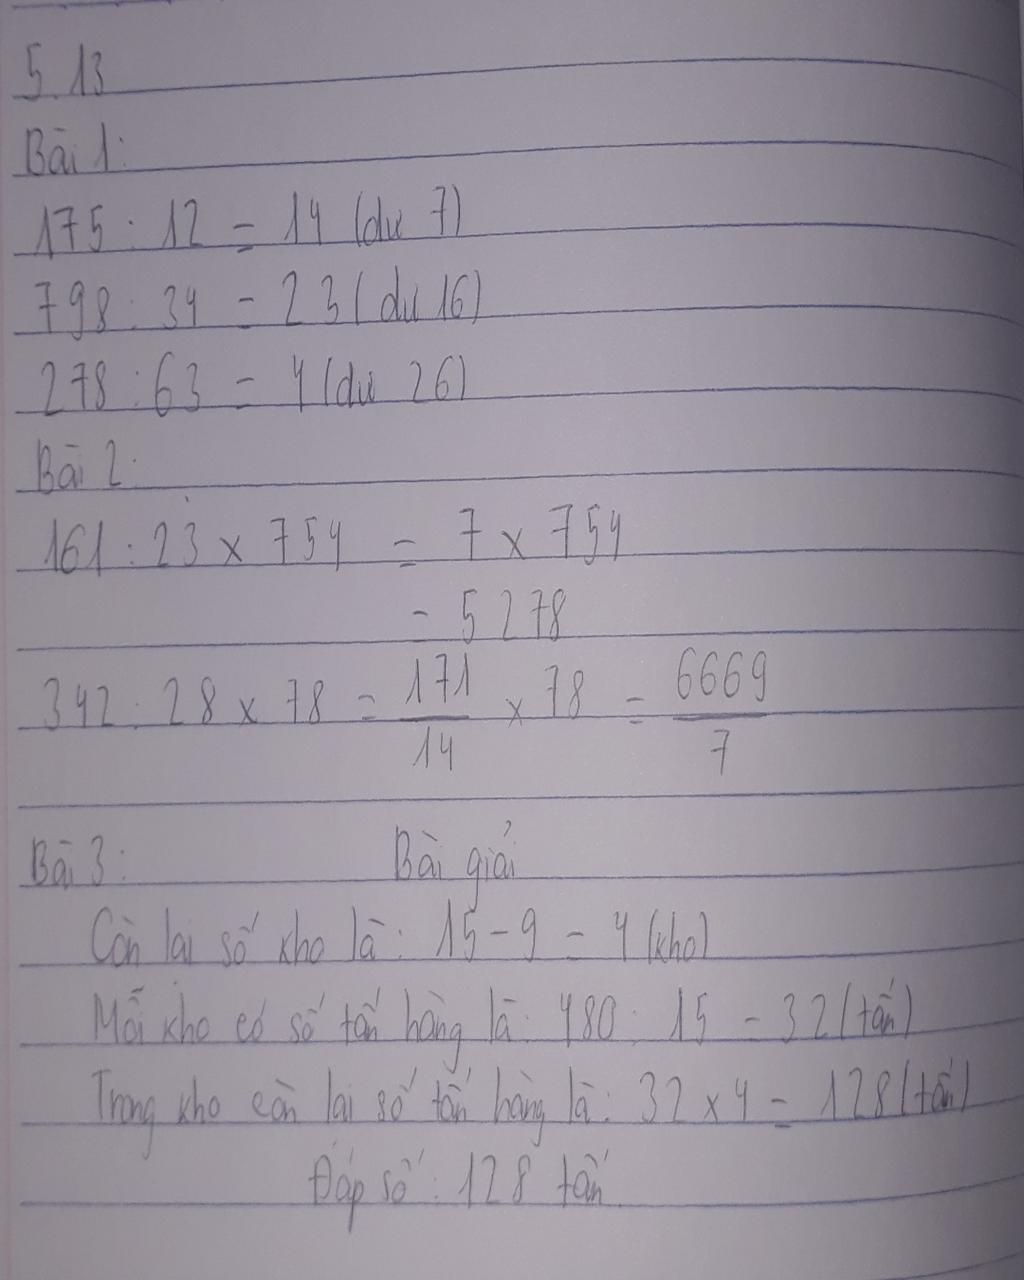 5.13
Bài 1:
175 : 12 = 14 (dư 7)
798 : 34 = 23 (dư 16)
278 : 63 = 4 (dư 26)
Bài 2:
161 : 23 x 754 = 7 x 754
= 5278
342 : 28 x 78 = 171/14 x 78 = 6669/7
Bài 3: Bài giải
Còn lại số kho là: 15 - 9 = 4 (kho)
Mỗi kho có số tấn hàng là: 480 : 15 = 32 (tấn)
Trong kho còn lại số tấn hàng là: 32 x 4 = 128 (tấn)
Đáp số: 128 tấn